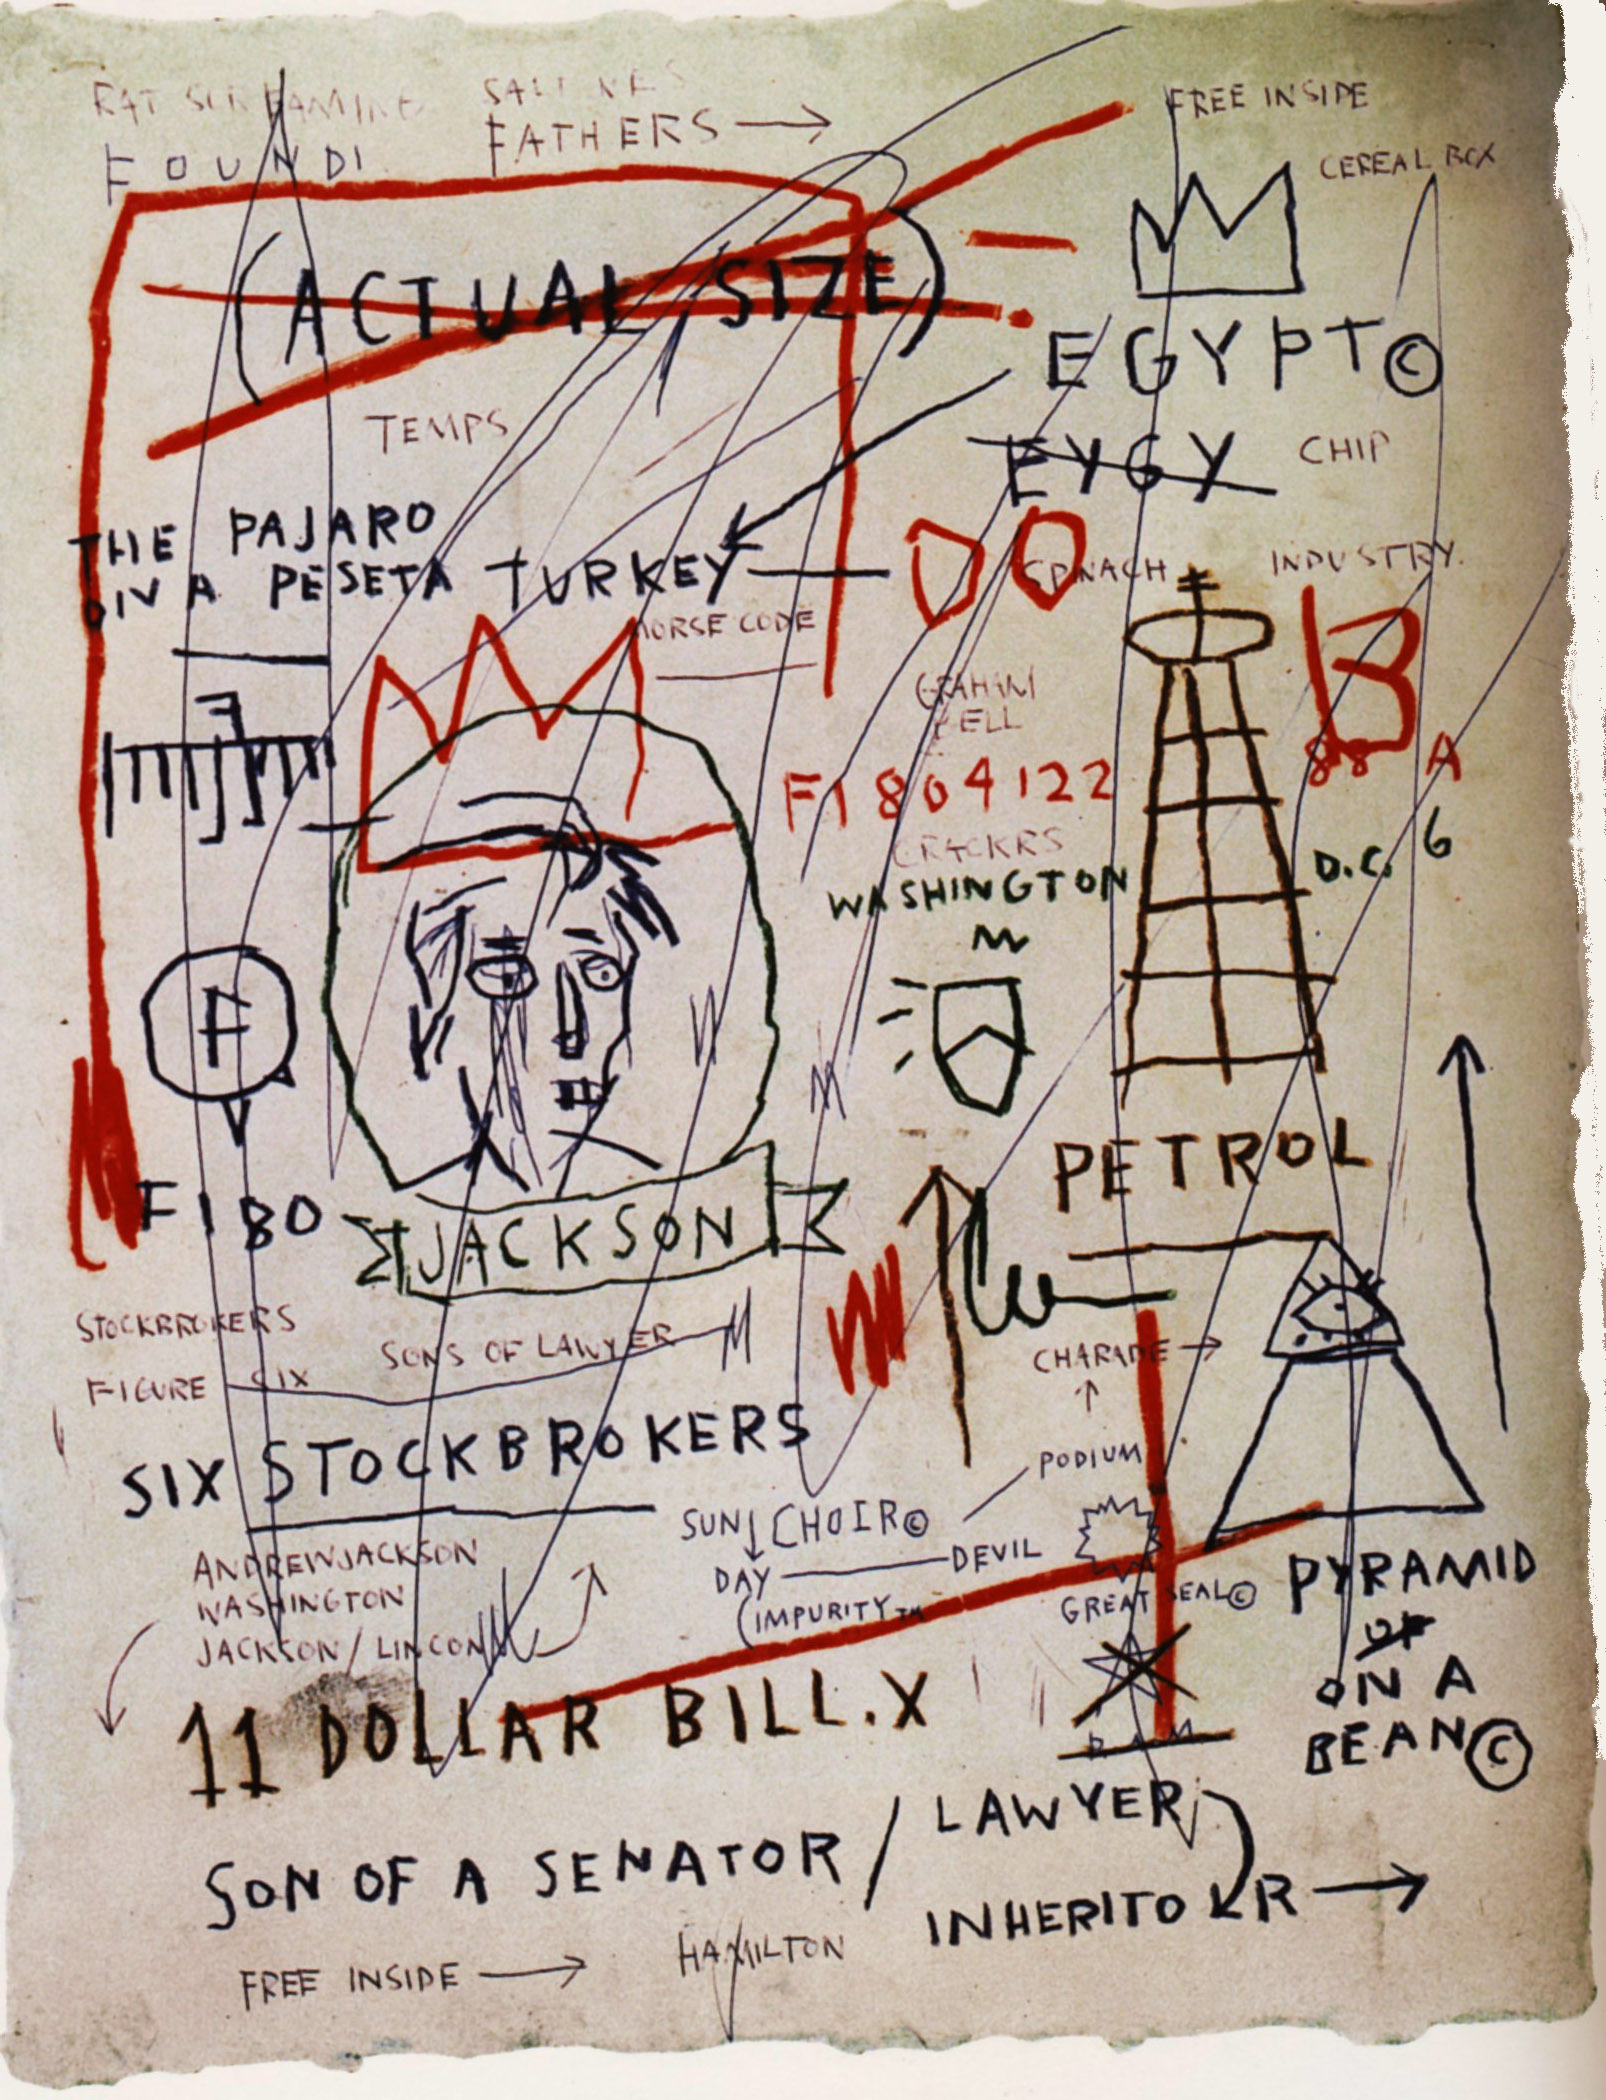 RAT SCREAMING
SALINES
FREE INSIDE
FOUNDI
FATHERS →
CEREAL BOX
(ACTUAL SIZE)
EGYPT©
TEMPS
EYGY
CHIP
THE PAJARO
ON A PESETA
TURKEY
DO
SPINACH
INDUSTRY.
MORSE CODE
B
GRAHAM
BELL
88 A
F1804122
6
CRACKRS
WASHINGTON
D.C.
M
F
F
PETROL
F180
JACKSON
STOCKBROKERS
SONS OF LAWYER
CHARADE →
FIGURE SIX
SIX STOCKBROKERS
PODIUM
SUN
CHOIR©
ANDREW JACKSON
DAY
DEVIL
WASHINGTON
(IMPURITY™
GREAT SEAL©
PYRAMID
JACKSON/LINCON
OF
ON A
11 DOLLAR BILL.X
BEAN©
LAWYER
SON OF A SENATOR /
INHERITOR →
FREE INSIDE →
HAMILTON